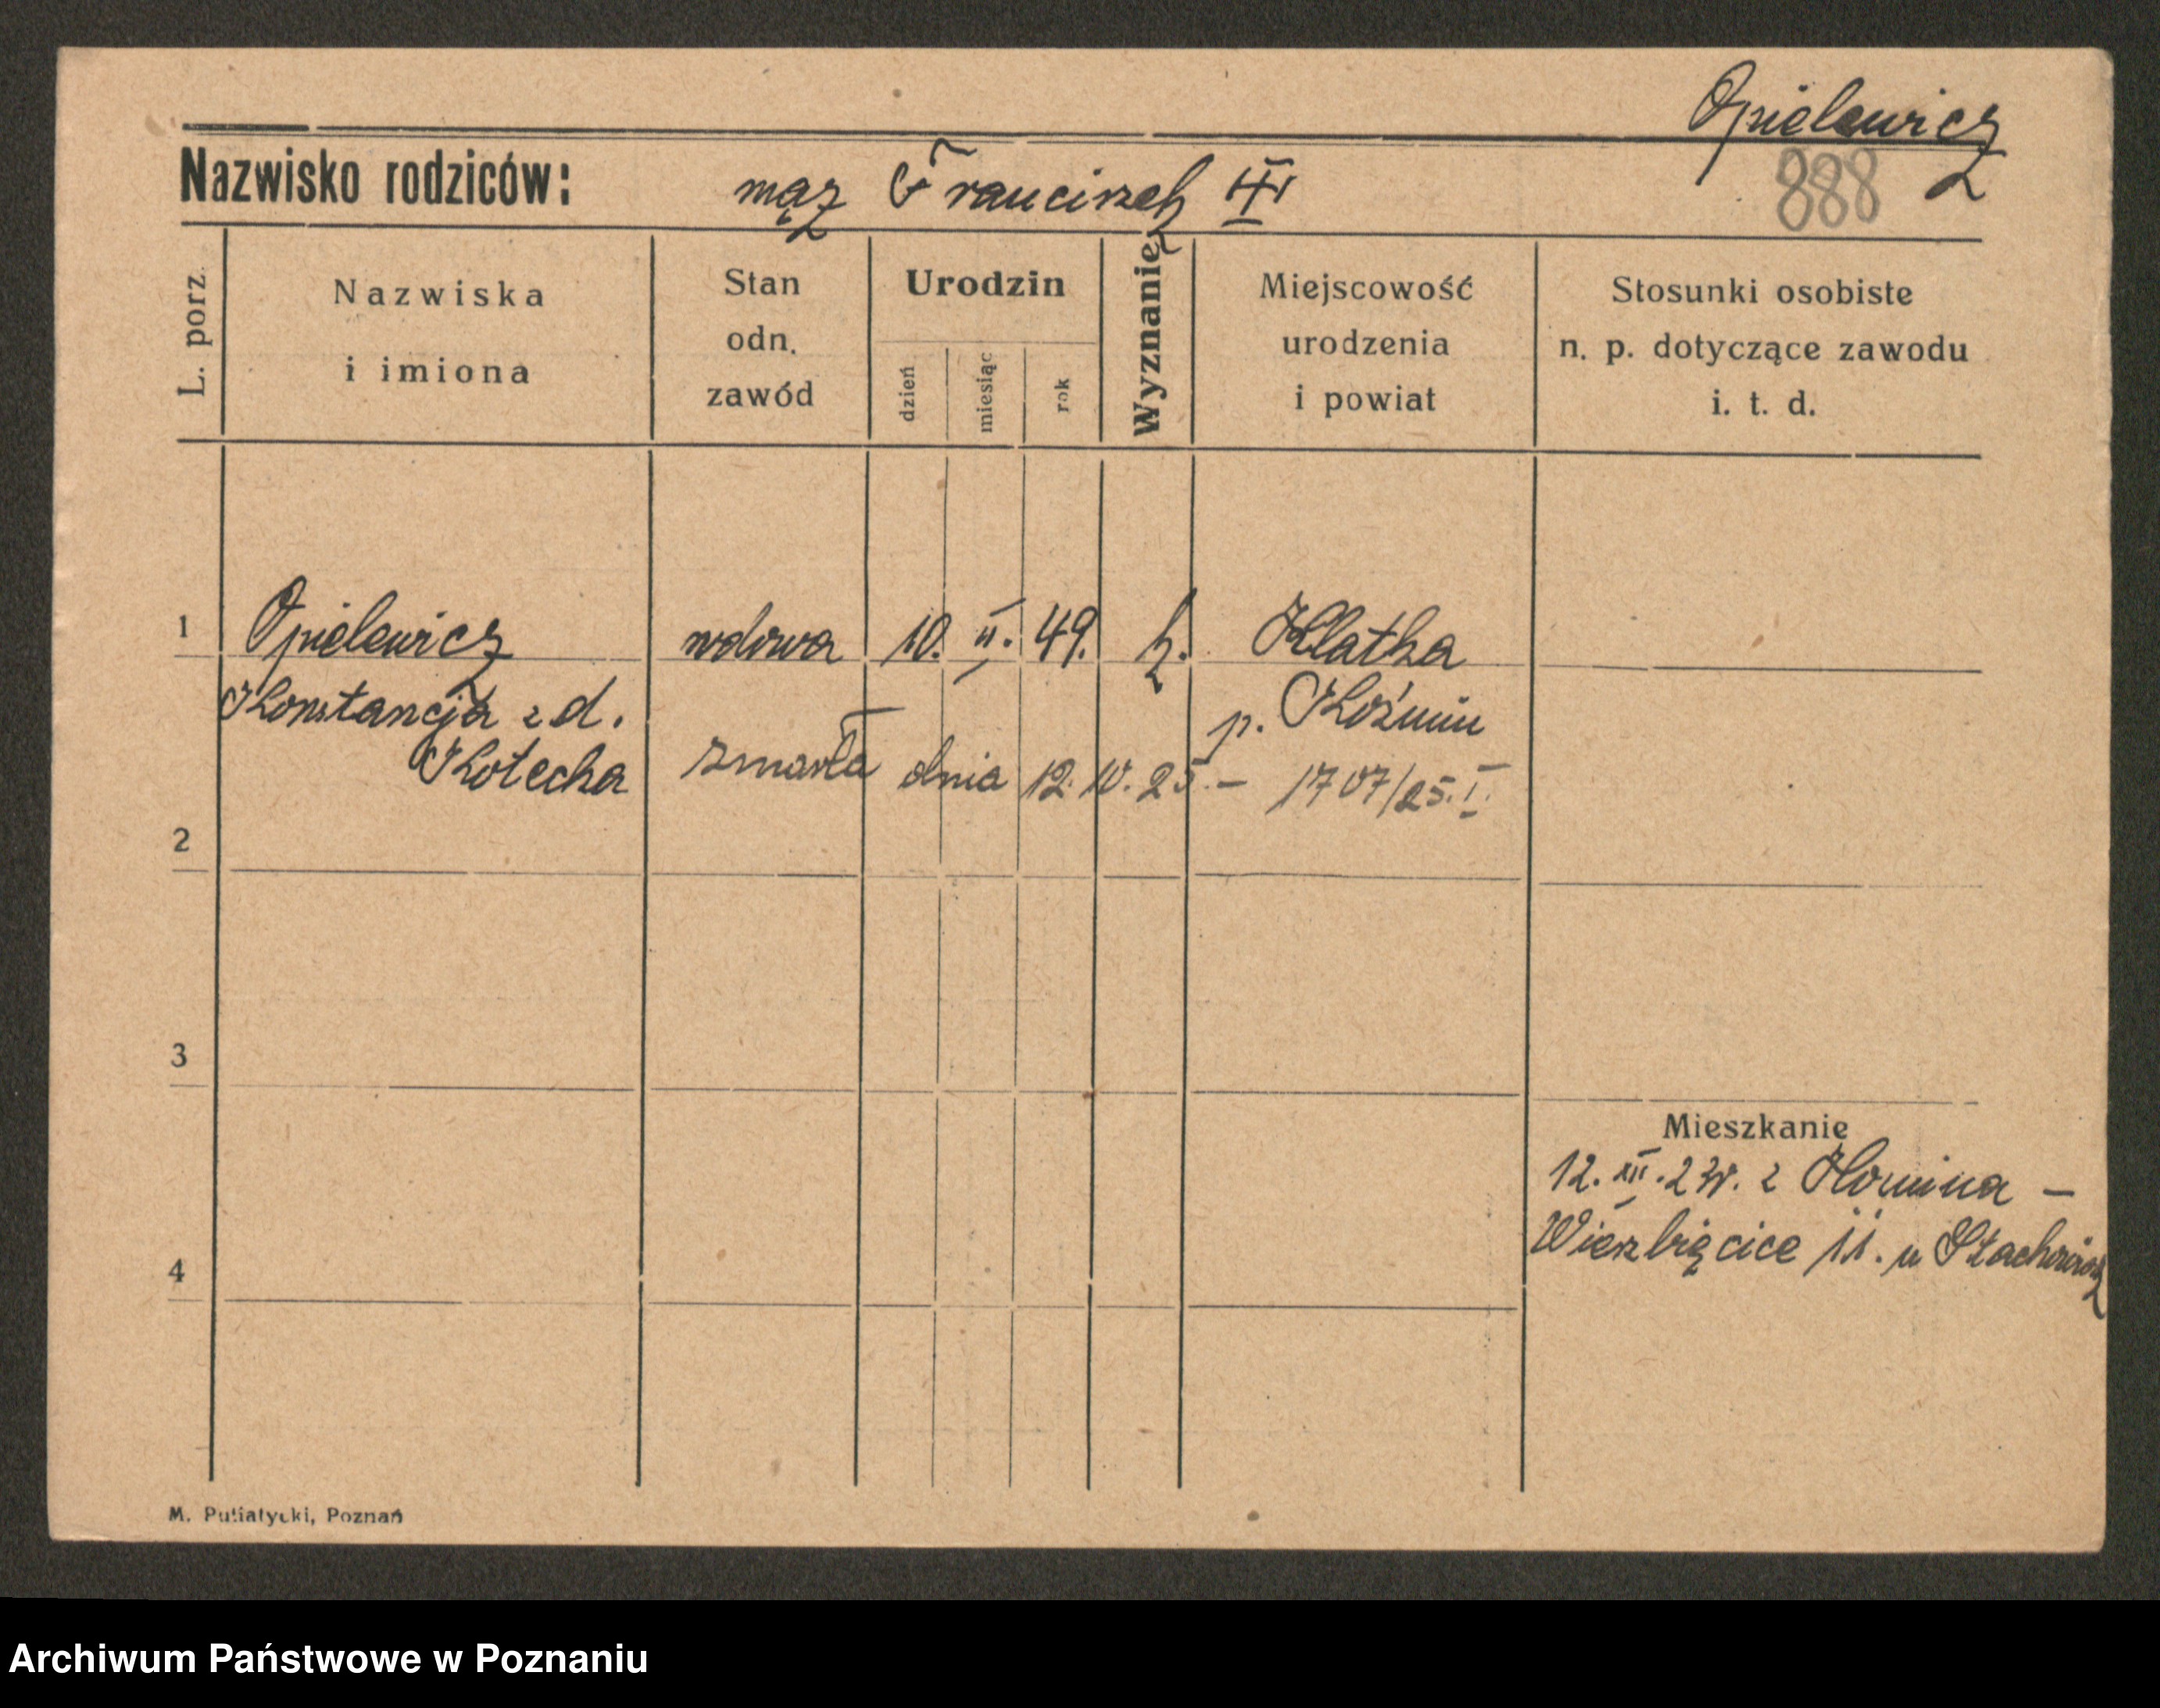 Opielewicz
888
Nazwisko rodziców: mąż Franciszek III
L. porz.
Nazwiska
i imiona
Stan
odn.
zawód
Urodzin
dzień
miesiąc
rok
Wyznanie
Miejscowość
urodzenia
i powiat
Stosunki osobiste
n. p. dotyczące zawodu
i. t. d.
1 Opielewicz wdowa 10. II. 49. k. Klatka
Konstancja z d. p. Koźmin
Kotecka zmarła dnia 12. 10. 25. – 1707/25. I.
2
3
Mieszkanie
12. III. z Konina –
Wierzbięcice 11. u Stachowicz
4
M. Putiatycki, Poznań
Archiwum Państwowe w Poznaniu